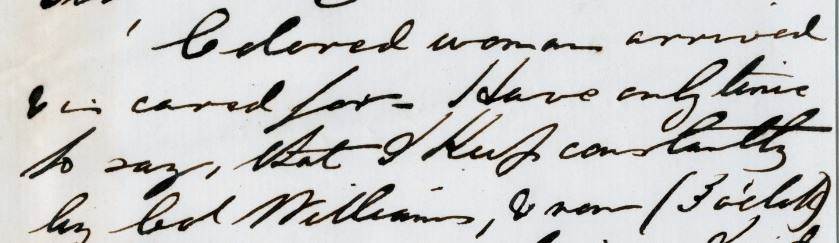 Colored woman arrived
& is cared for - Have only time
to say, that I Keep constantly
by Col Williams, & now (3 o'clock)